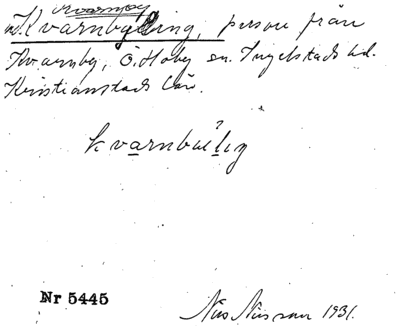 Kvarnby
Kvarnbyling, person från
Kvarnby, Ö. Hoby sn. Ingelstads hd.
Kristianstads län.
kvarnbɯlıŋ
Nr 5445
Nils Nilsson 1931.